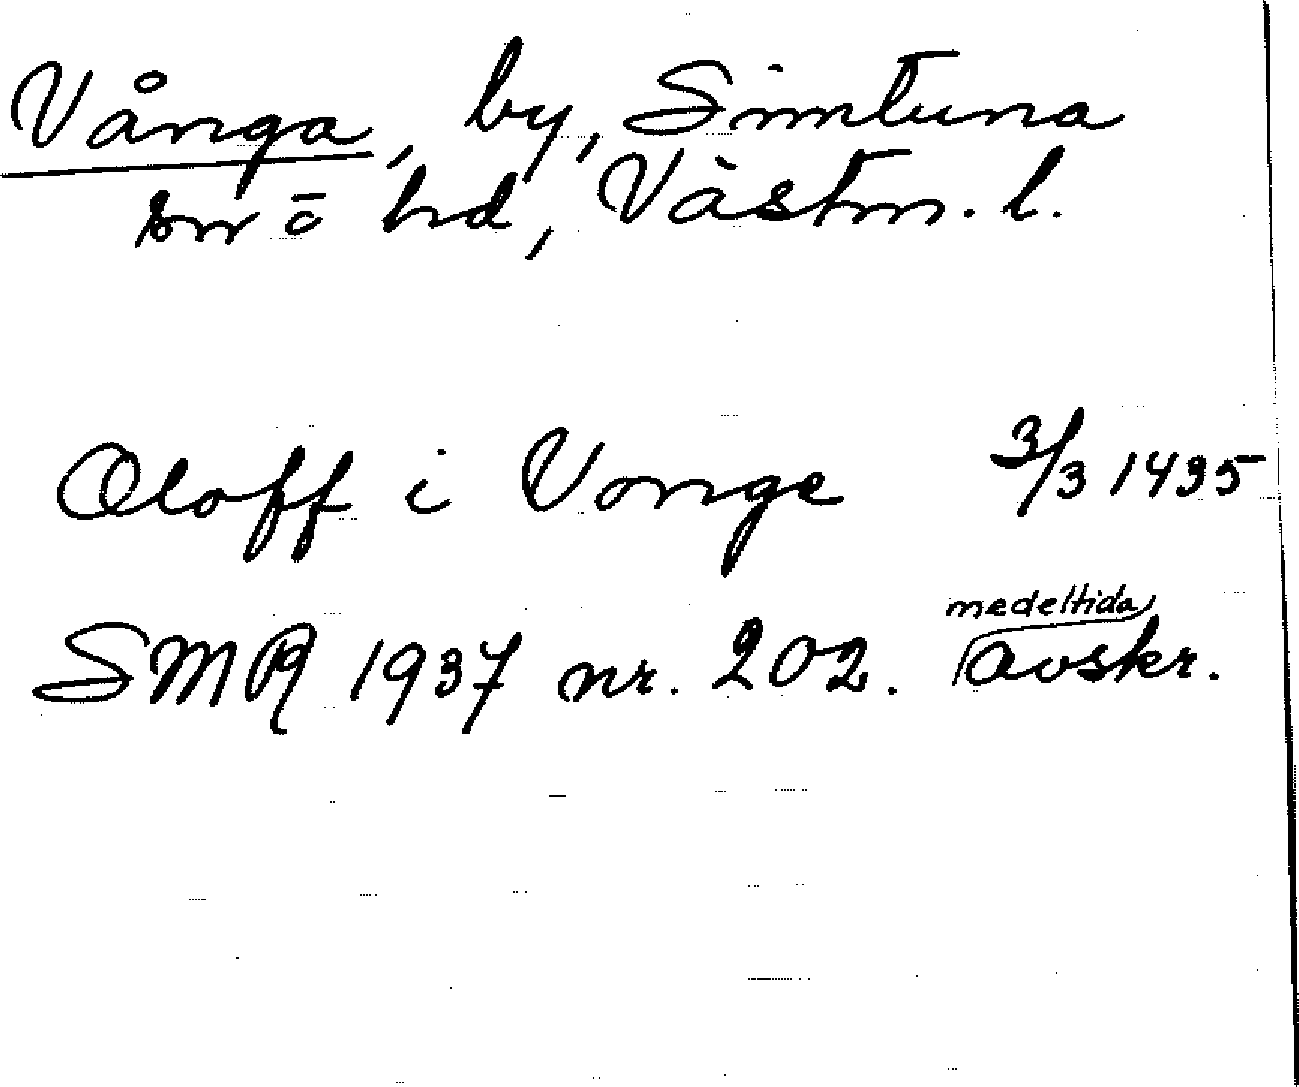 Vånga, by, Simtuna
sn o hd, Västm. l.
Oloff i Vonge 3/3 1495
medeltida
SMR 1937 nr. 202. avskr.